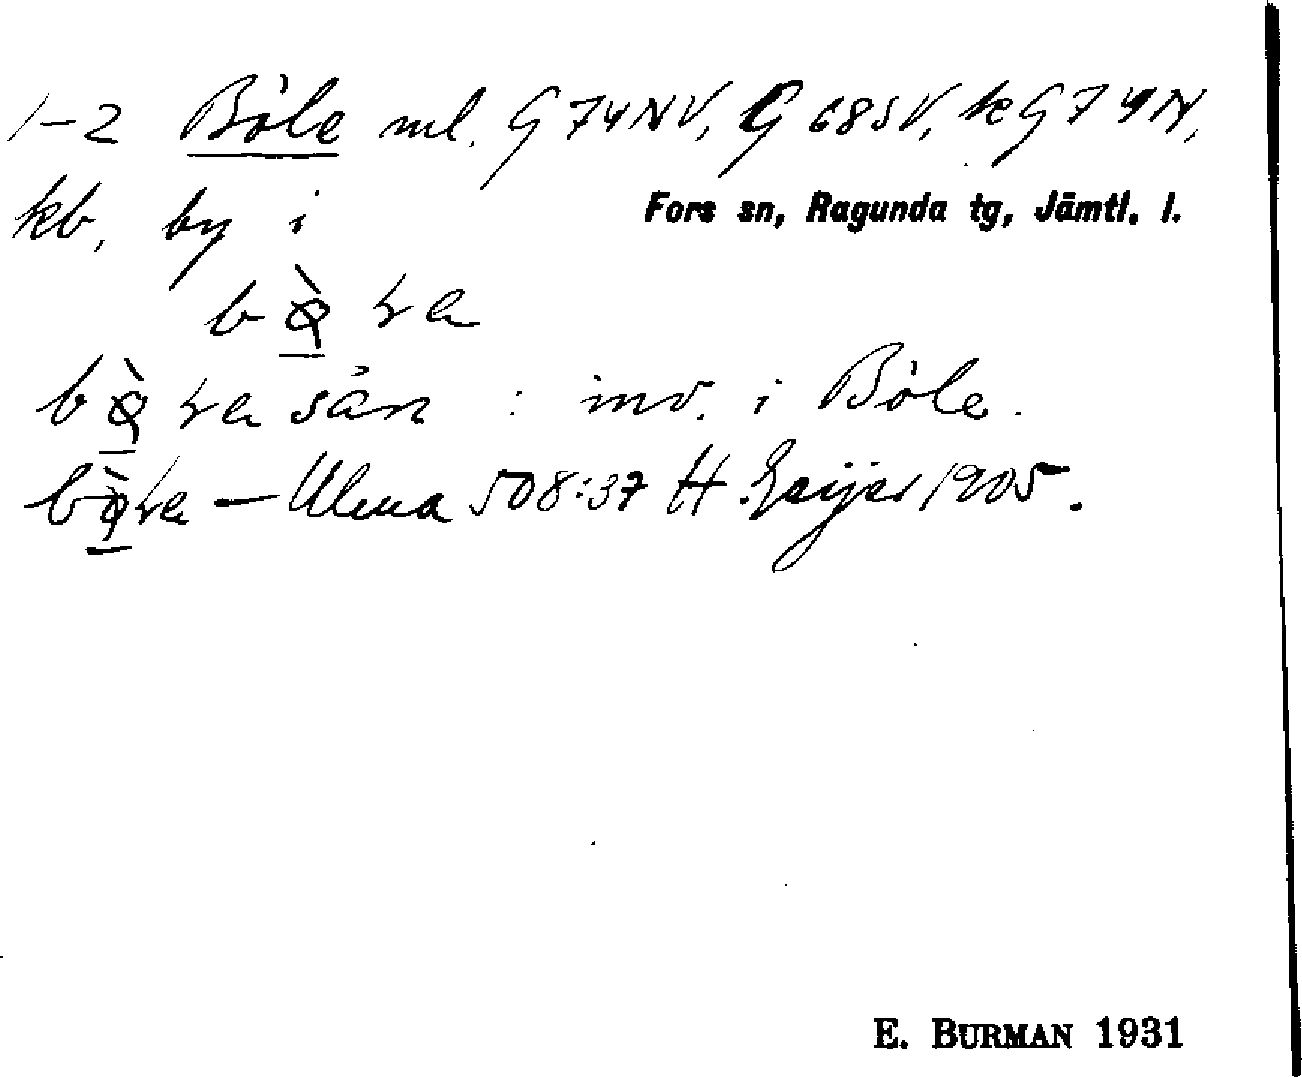 1-2 Böle ml. G 74 NV, G 68 SV, k G 74 N,
kb, by i Fors sn, Ragunda tg, Jämtl. l.
inv. i Böle.
— Ulma 508:37 H. Geijer 1905.
E. BURMAN 1931